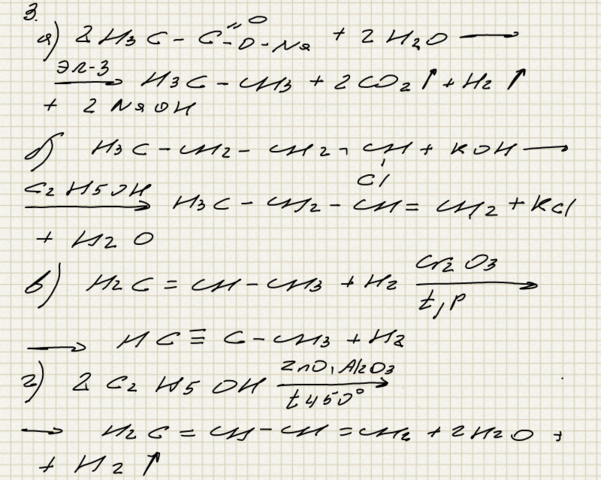 3.
а) 2H3C-C=O-O-Na + 2H2O ⟶
эл-з ⟶ H3C-CH3 + 2CO2↑ + H2↑
+ 2NaOH
б) H3C-CH2-CH2-CH + KOH ⟶
Cl
C2H5OH ⟶ H3C-CH2-CH=CH2 + KCl
+ H2O
в) H2C=CH-CH3 + H2 Cr2O3 t,p ⟶
⟶ HC≡C-CH3 + H2
г) 2C2H5OH ZnO, Al2O3 t450° ⟶
⟶ H2C=CH-CH=CH2 + 2H2O +
+ H2↑